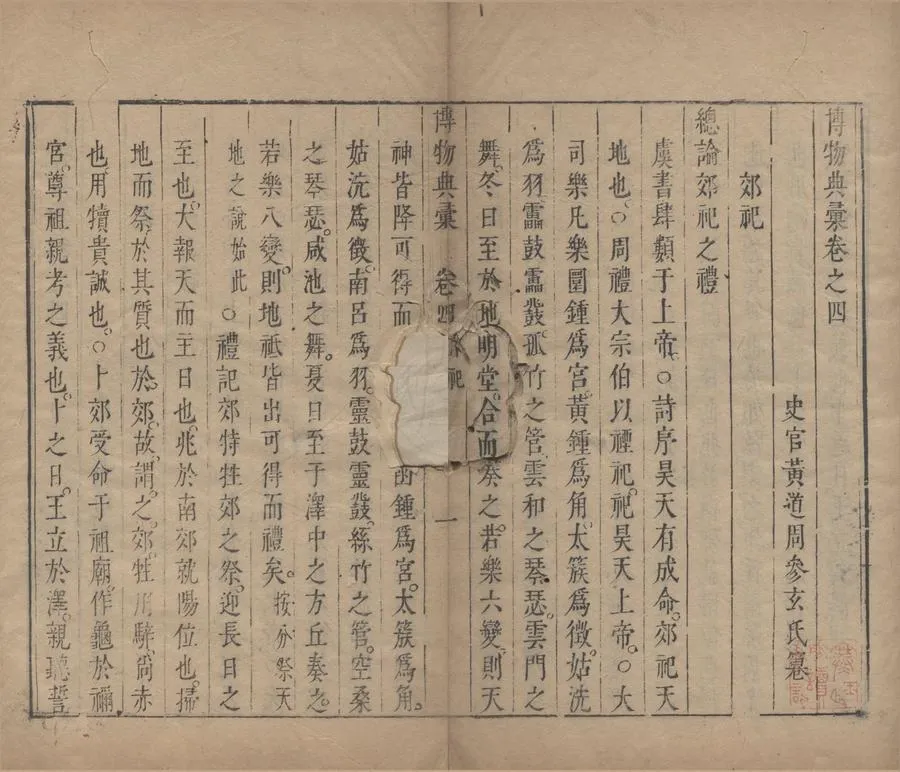 博物典彙卷之四
史官黃道周參玄氏纂
郊祀
總論郊祀之禮
虞書肆類于上帝○詩序昊天有成命郊祀天
地也○周禮大宗伯以禋祀祀昊天上帝○大
司樂凡樂圜鍾爲宮黃鍾爲角太簇爲徵姑洗
爲羽靁鼓靁鼗孤竹之管雲和之琴瑟雲門之
舞冬日至於地明堂合而奏之若樂六變則天
博物典彙 卷四 祀 一
神皆降可得而 函鍾爲宮太簇爲角
姑洗爲徵南呂爲羽靈鼓靈鼗絲竹之管空桑
之琴瑟咸池之舞夏日至于澤中之方丘奏之
若樂八變則地祗皆出可得而禮矣按分祭天
地之說始此○禮記郊特牲郊之祭迎長日之
至也大報天而主日也兆於南郊就陽位也掃
地而祭於其質也於郊故謂之郊牲用騂尚赤
也用犢貴誠也○卜郊受命于祖廟作龜於禰
宮尊祖親考之義也卜之日王立於澤親聽誓